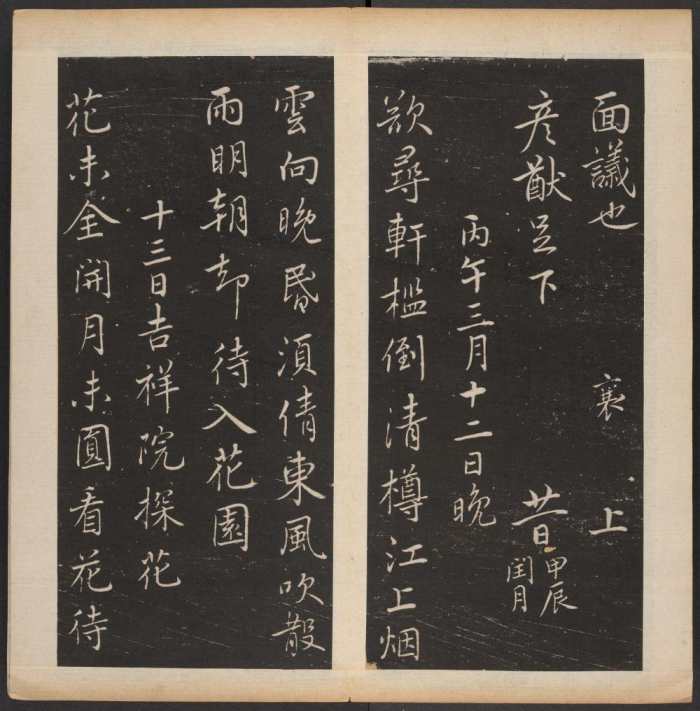 面議也 襄 上
彦猷足下 昔 甲辰
閏月
丙午三月十二日晚
欲尋軒檻倒清樽江上烟
雲向晚昬須倩東風吹散
雨明朝却待入花園
十三日吉祥院探花
花未全開月未圓看花待